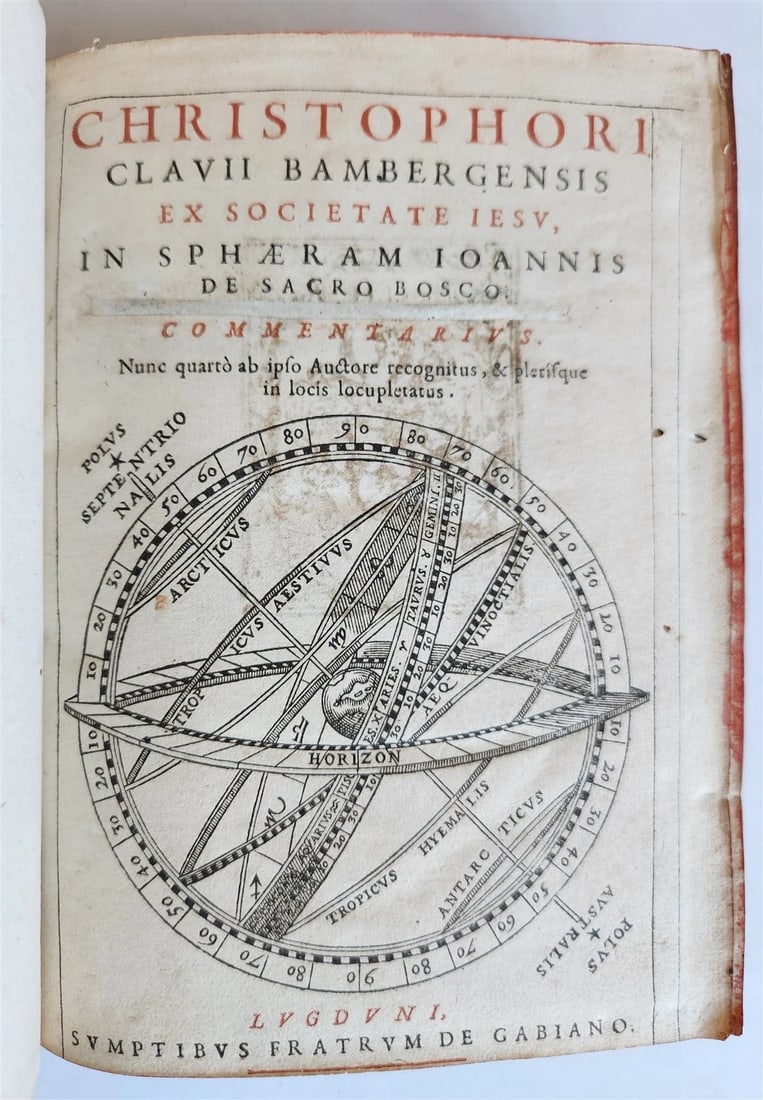 CHRISTOPHORI
CLAVII BAMBERGENSIS
EX SOCIETATE IESV,
IN SPHÆRAM IOANNIS
DE SACRO BOSCO.
COMMENTARIVS.
Nunc quartò ab ipſo Auctore recognitus, & pleriſque
in locis locupletatus.
POLVS
SEPTENTRIO
NALIS
90
80 80
70 70
60 60
50 50
40 40
30 30
20 20
10 10
ARCTICVS
TROPICVS AESTIVVS
GEMINI. ♊
TAVRVS. ♉
ARIES. ♈
AEQVINOCTIALIS
10 20 30
10 20 30
10 20 30
♍
♎
ES. ♓
HORIZON
PISC
AQVARIVS ♒
10 20 30
♏
♐
TROPICVS HYEMALIS
ANTARCTICVS
10 10
20 20
30 30
40 40
50 50
60 60
70 70
80 80
90
POLVS
AVSTRALIS
LVGDVNI,
SVMPTIBVS FRATRVM DE GABIANO.